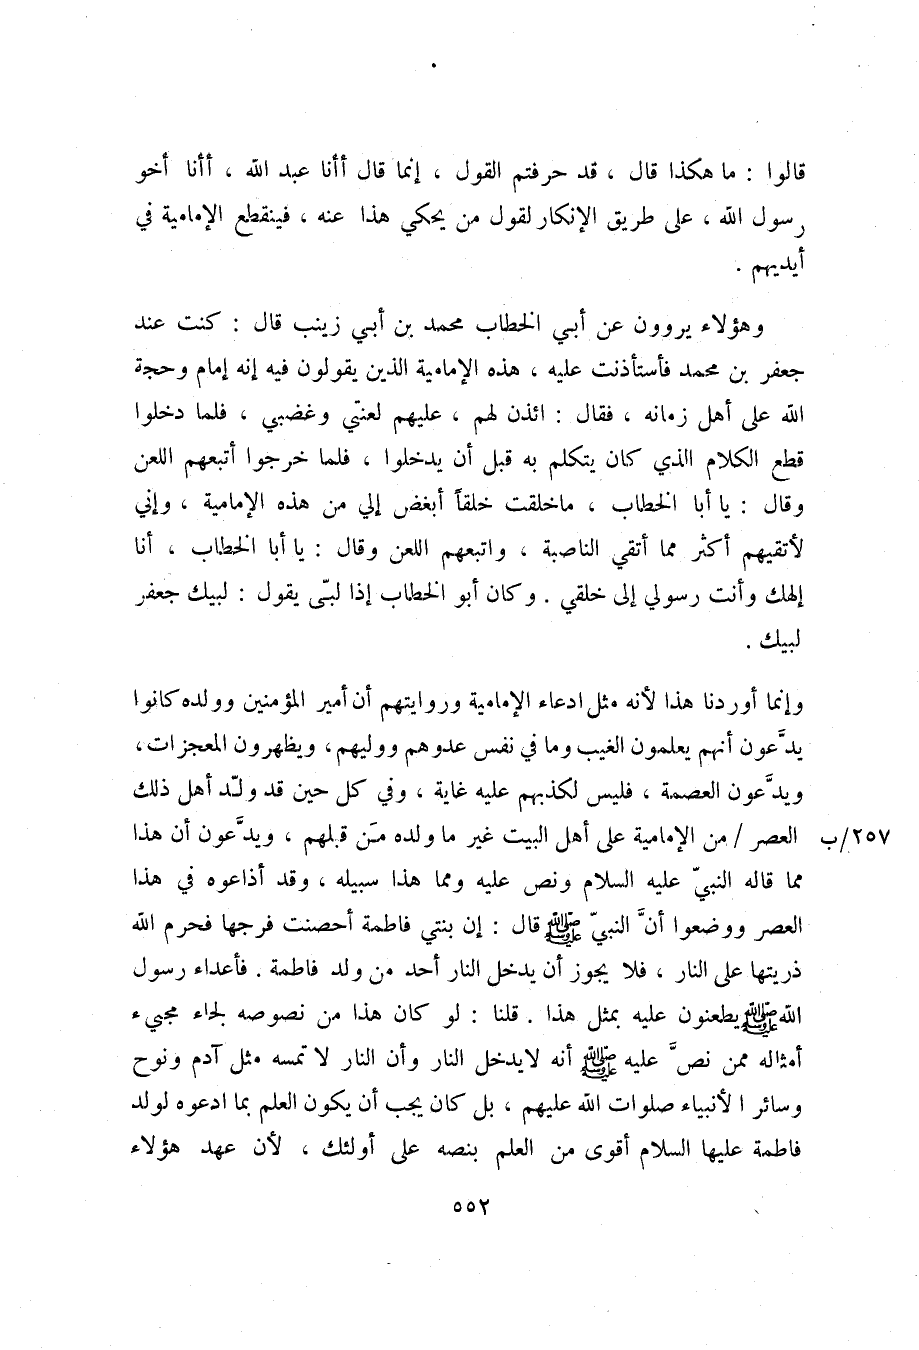 قالوا : ما هكذا قال ، قد حرفتم القول ، إنما قال أأنا عبد الله ، أأنا أخو
رسول الله ، على طريق الإنكار لقول من يحكي هذا عنه ، فينقطع الإمامية في
أيديهم .
وهؤلاء يروون عن أبي الخطاب محمد بن أبي زينب قال : كنت عند
جعفر بن محمد فأستأذنت عليه ، هذه الإمامية الذين يقولون فيه إنه إمام وحجة
الله على أهل زمانه ، فقال : ائذن لهم ، عليهم لعنتي وغضبي ، فلما دخلوا
قطع الكلام الذي كان يتكلم به قبل أن يدخلوا ، فلما خرجوا أتبعهم اللعن
وقال : يا أبا الخطاب ، ماخلقت خلقاً أبغض إلي من هذه الإمامية ، وإني
لأتقيهم أكثر مما أتقي الناصبة ، واتبعهم اللعن وقال : يا أبا الخطاب ، أنا
إلهك وأنت رسولي إلى خلقي . وكان أبو الخطاب إذا لبّى يقول : لبيك جعفر
لبيك .
وإنما أوردنا هذا لأنه مثل ادعاء الإمامية وروايتهم أن أمير المؤمنين وولده كانوا
يدَّعون أنهم يعلمون الغيب وما في نفس عدوهم ووليهم، ويظهرون المعجزات،
ويدَّعون العصمة ، فليس لكذبهم عليه غاية ، وفي كل حين قد ولّد أهل ذلك
العصر / من الإمامية على أهل البيت غير ما ولده مَن قبلهم ، ويدَّعون أن هذا ٢٥٧/ب
مما قاله النبيّ عليه السلام ونص عليه ومما هذا سبيله ، وقد أذاعوه في هذا
العصر ووضعوا أنَّ النبيّ ﷺ قال : إن بنتي فاطمة أحصنت فرجها فحرم الله
ذريتها على النار ، فلا يجوز أن يدخل النار أحد من ولد فاطمة . فأعداء رسول
الله ﷺ يطعنون عليه بمثل هذا . قلنا : لو كان هذا من نصوصه لجاء مجيء
أمثاله ممن نصَّ عليه ﷺ أنه لايدخل النار وأن النار لا تمسه مثل آدم ونوح
وسائر الأنبياء صلوات الله عليهم ، بل كان يجب أن يكون العلم بما ادعوه لولد
فاطمة عليها السلام أقوى من العلم بنصه على أولئك ، لأن عهد هؤلاء
٥٥٢